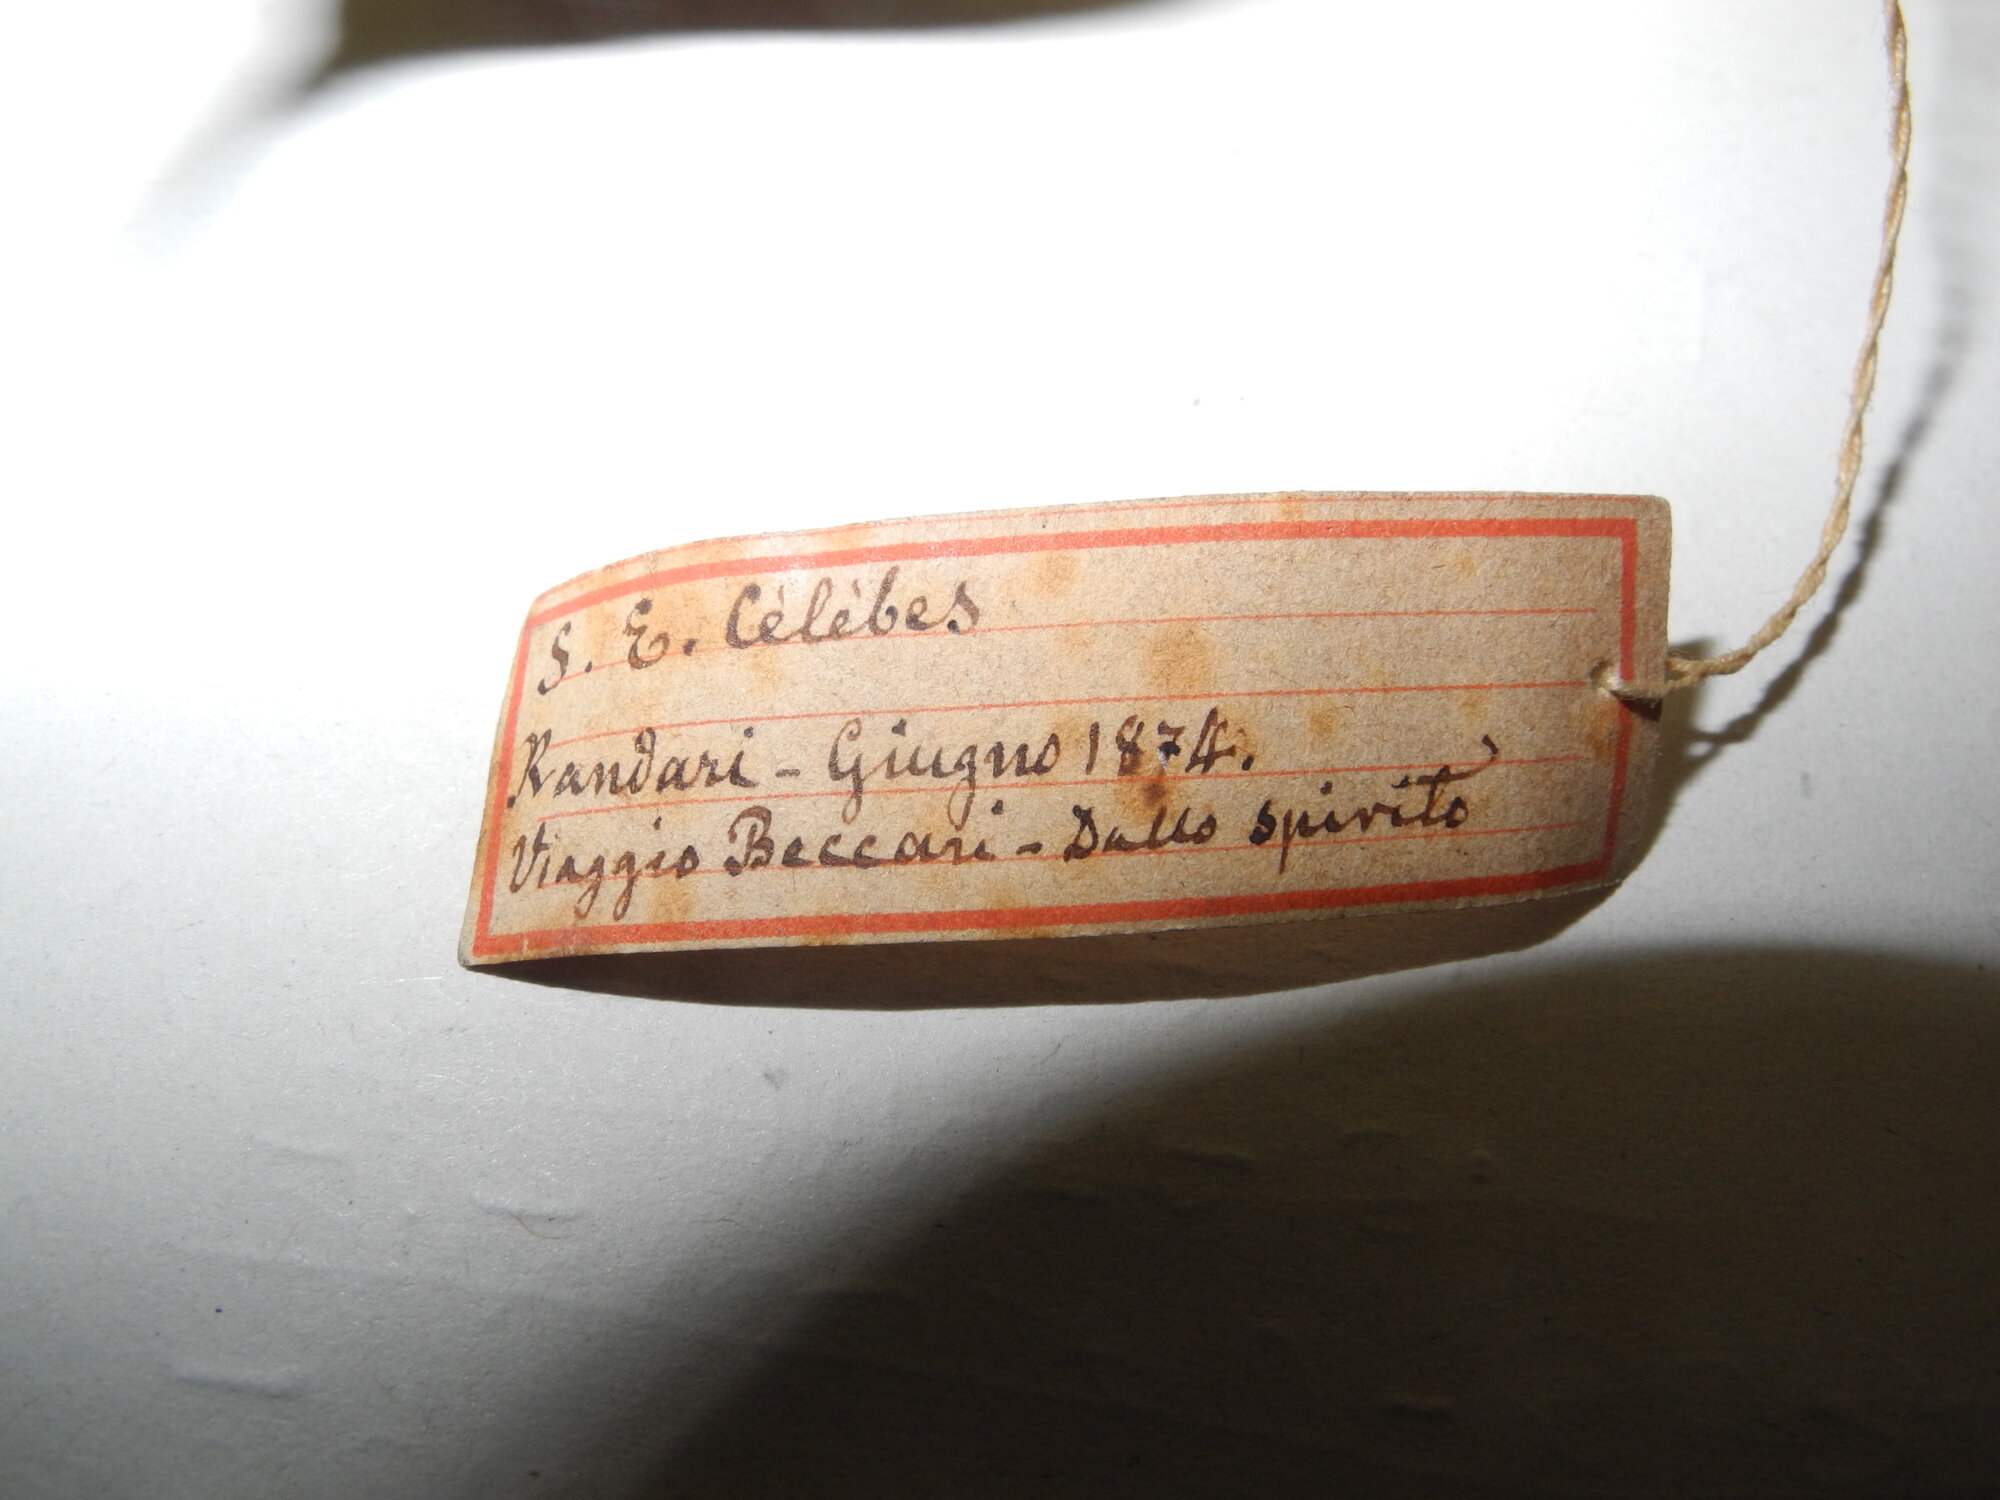 S. E. Célébes
Kandari - Giugno 1874.
Viaggio Beccari - Dallo spirito